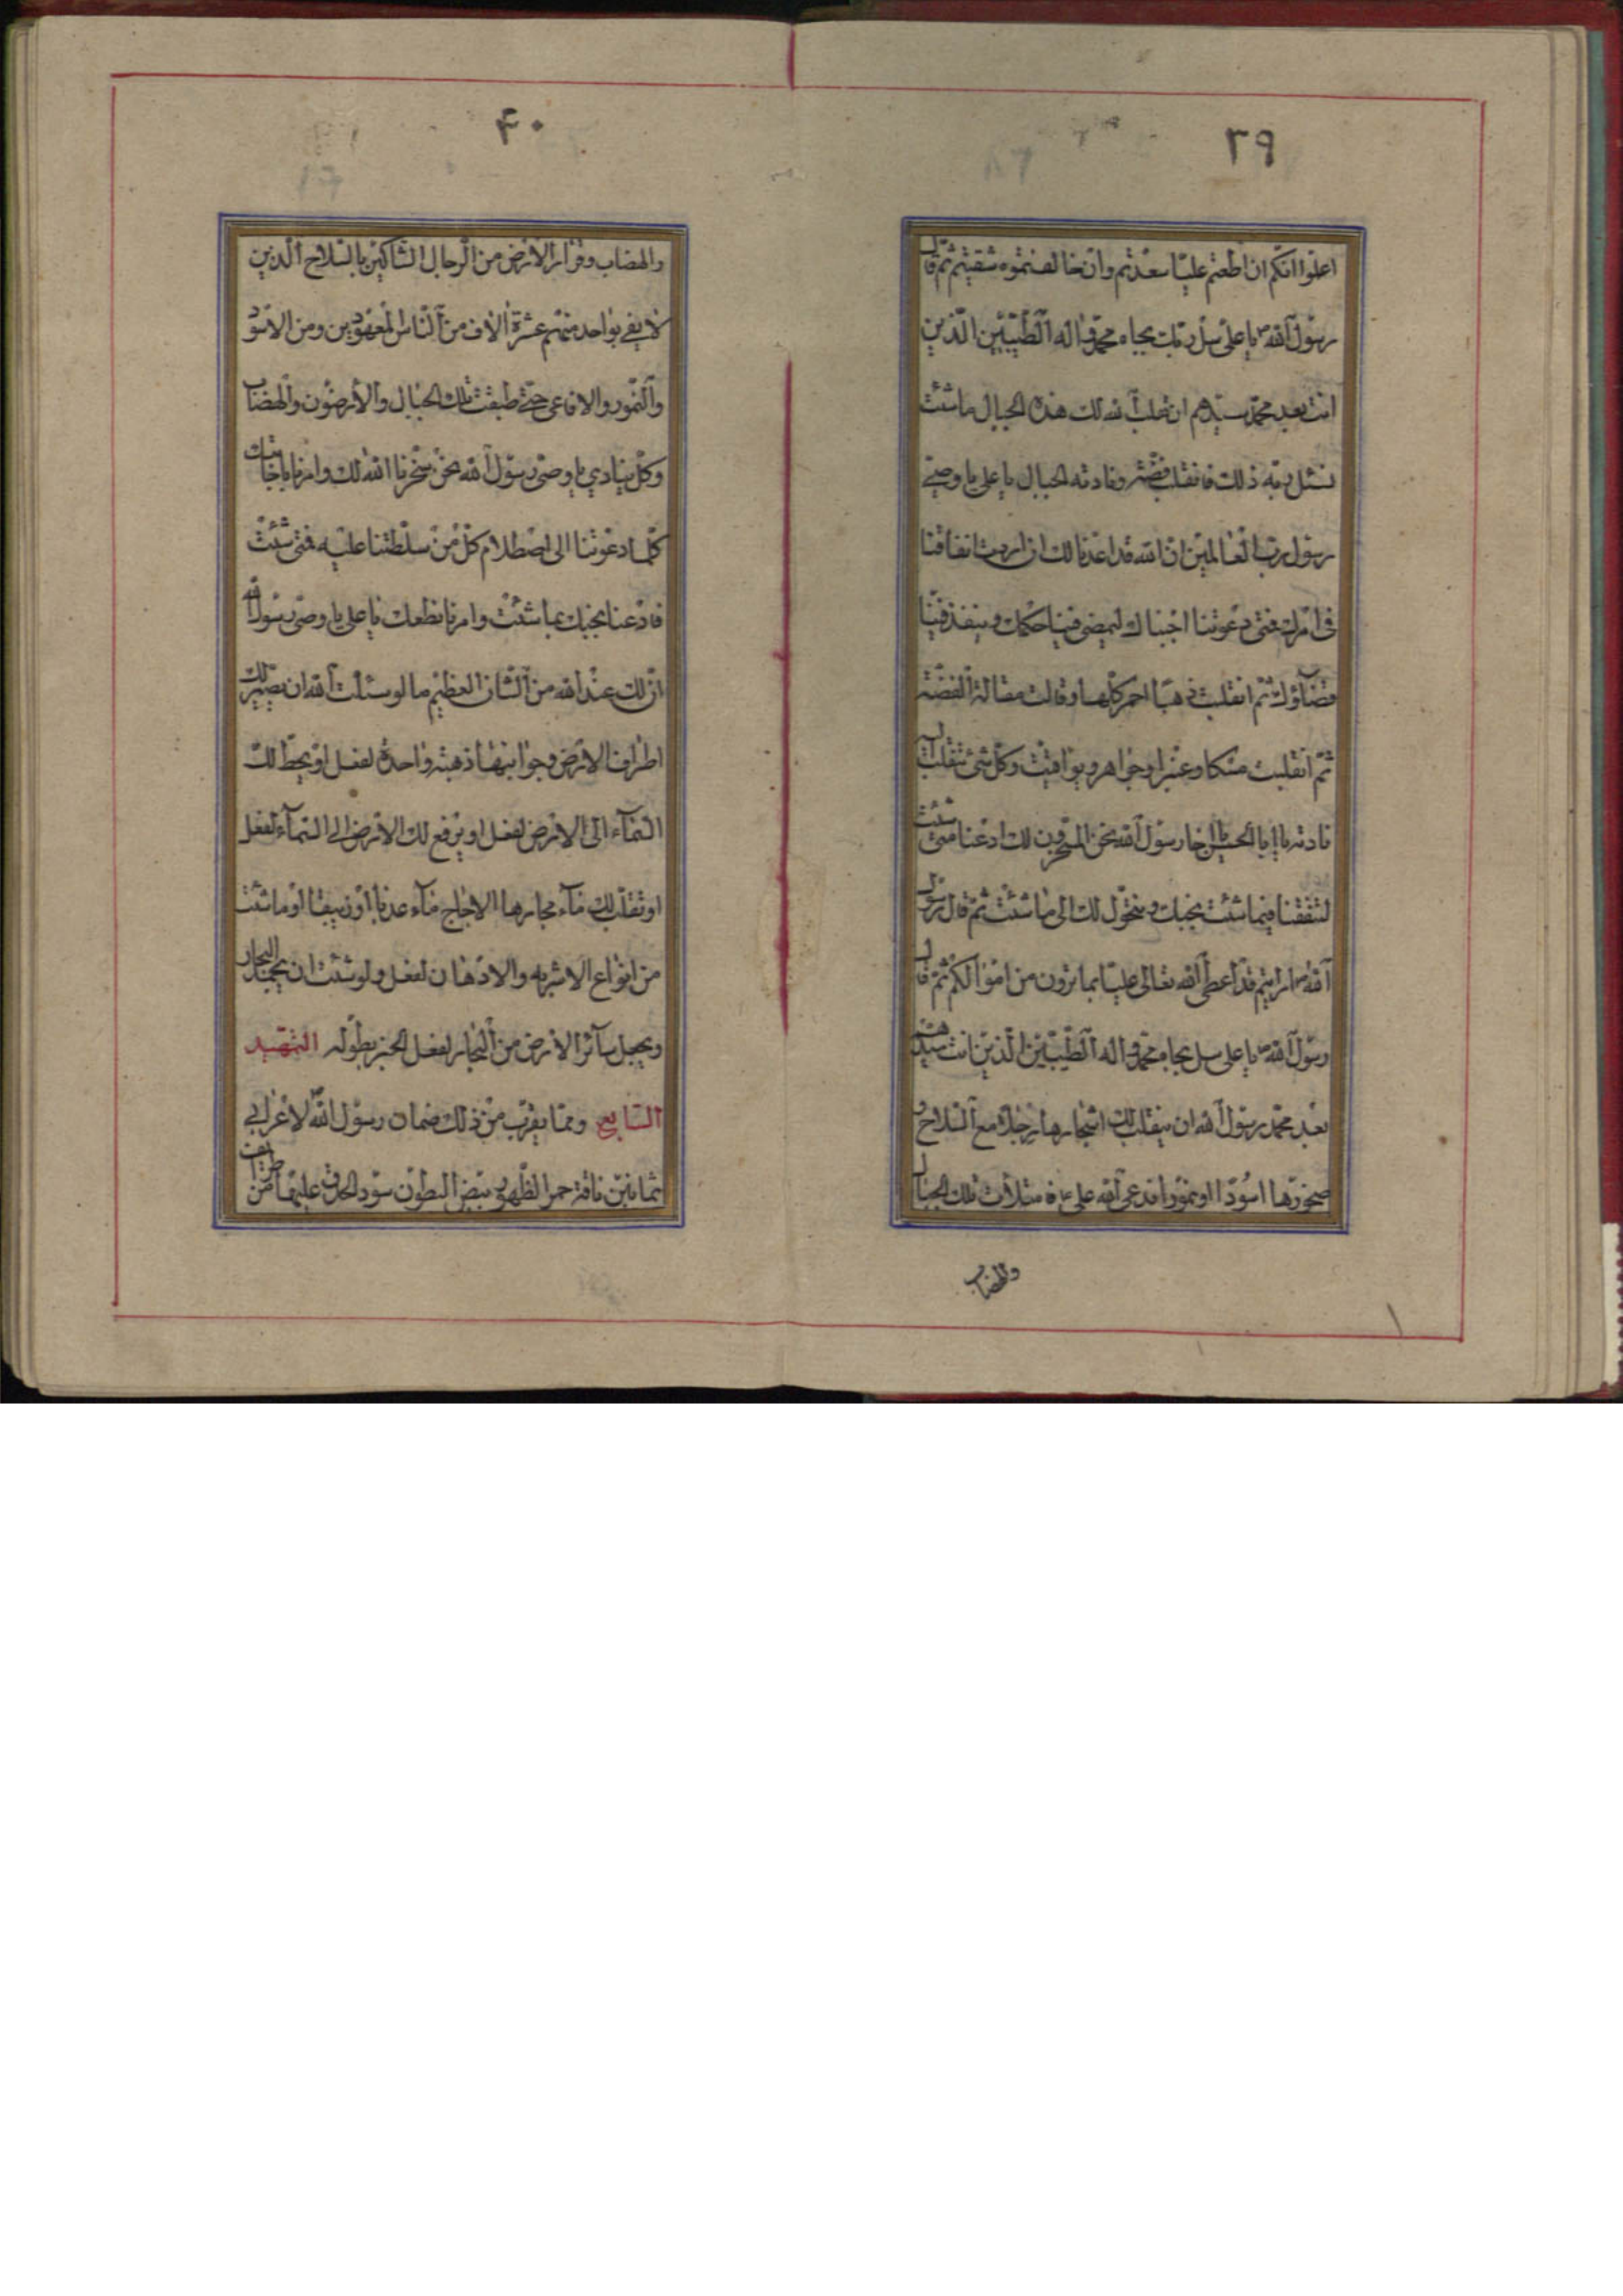 ٣٩
اعلموا انكم ان اطعتم عليّا سعدتم وان خالفتموه شقيتم ثم قال
رسول الله ص يا على سل ربك بجاه محمد و اله الطيبين الذين
انت بعد محمد سيدهم ان يقلب الله لك هذه الجبال ما شئت
فسئل ربه ذلك فانقلبت فضة و نادته الجبال يا على يا وصى
رسول رب العالمين ان الله قد اعدنا لك ان اردت انفاقنا
فى امرك فمتى دعوتنا اجبناك ليمضى فينا حكمك و ينفذ فينا
قضاؤك ثم انقلبت ذهبا احمر كلها و قالت مقالة الفضة
ثم انقلبت مسكا و عنبرا و جواهر و يواقيت و كل شئ تنقلب اليه
نادته يا ابا الحسن يا اخا رسول الله نحن المسخرون لك ادعنا متى شئت
لتنفقنا فيما شئت نجبك و نتحول لك الى ما شئت ثم قال رسول
الله ص ارايتم قد اعطى الله تعالى عليا بما ترون من اموالكم ثم قال
رسول الله ص يا على سل بجاه محمد و اله الطيبين الذين انت سيدهم
بعد محمد رسول الله ان يقلب لك اشجارها رجالا مع السلاح و
صخورها اسودا او نمورا فدعى الله على ع فامتلأت تلك الجبال
والهضاب
٤٠
والهضاب و قرار الارض من الرجال الشاكين بالسلاح الذين
لا يفى بواحد منهم عشرة الاف من الناس المعهودين و من الاسود
والنمور والافاعى حتى طبقت تلك الجبال والارضون والهضاب
وكل ينادي يا وصى رسول الله نحن سخرنا الله لك و امرنا باجابتك
كلما دعوتنا الى اصطلام كل من سلطتنا عليه فمتى شئت
فادعنا نجبك بما شئت و امرنا نطعك يا على يا وصى رسول الله
ان لك عند الله من الشان العظيم ما لو سئلت الله ان يصير لك
اطراف الارض و جوانبها ذهبة واحدة لفعل او يحط لك
السماء الى الارض لفعل او يرفع لك الارض الى السماء لفعل
او تقلب لك ماء بحارها الاجاج ماء عذبا او زيبقا او ما شئت
من انواع الاشربه والادهان لفعل ولو شئت ان يجمد البحار
و يجعل سائر الارض من البحار لفعل الخبر بطوله التمهيد
السابع و مما يقرب من ذلك ضمان رسول الله لاعرابى
ثمانين ناقة حمر الظهور بيض البطون سود الحدق عليها من طرائف